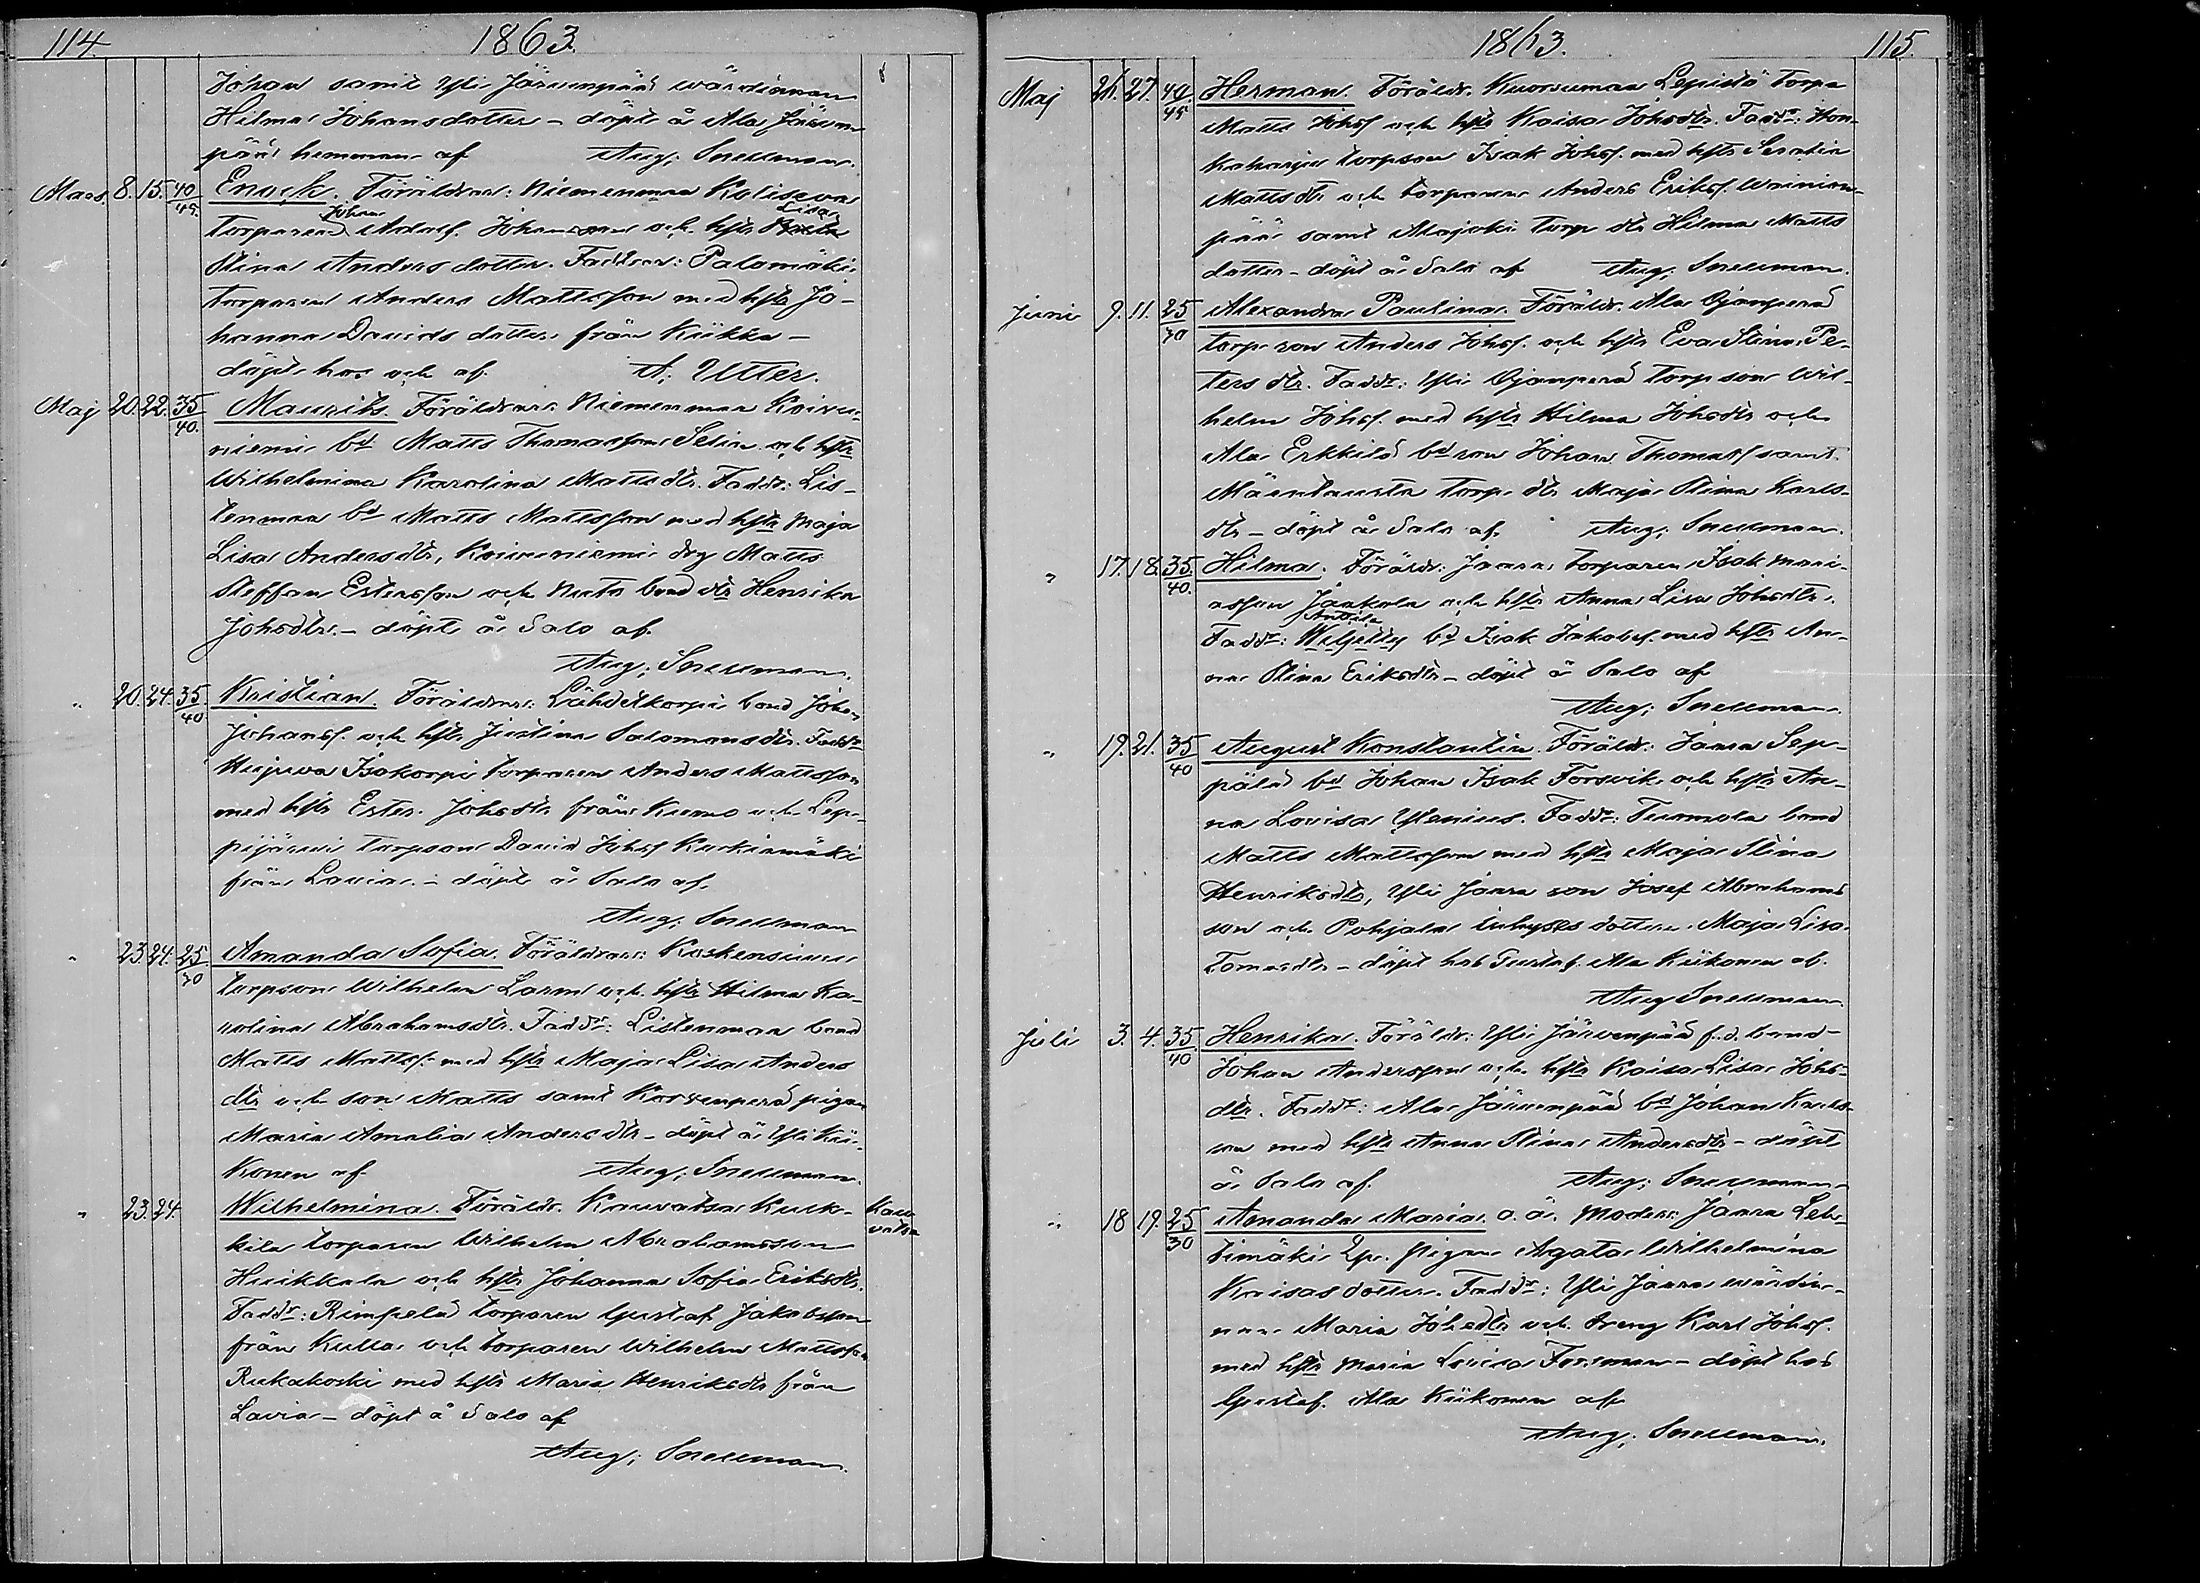 114.
1863.
Johan samt Yli Järvenpää värdinnan
Hilma Johansdotter – döpt å Ala Järven
pää hemman af Aug; Snellman.
Mars 8. 15. 40/45. Enock. Föräldrar: Niemenmaa
Johan Lisa
torparen Adolf Johansson och hst
Stina Andersdotter. Faddrar: Palomäki
torparen Anders Mattsson med hst Jo-
hanna Davidsdotter från Kiikka –
döpt hos och af A; Utter.
Maj 20. 22. 35/40. Maurits. Föräldrar: Niemenmaa Koivu-
niemi bd Matts Thomasson Selin och hst
Wilhelmina Karolina Mattsdtr. Faddr: Lis-
tenmaa bd Matts Mattsson med hst Maja
Lisa Andersdtr, Koivuniemi drg Matts
Steffan Estersson och bond dtr Henrika
Johsdtr. – döpt å Salo af
Aug; Snellman.
" 20. 24. 35/40 Kristian. Föräldrar: Lähdekorpi bond Johan
Johansf. och hst Justina Salomonsdtr. Faddr
Isokorpi torparen Anders Mattsson
med hst Ester Johsdtr från Kumo och Lep-
pijärvi torpson David Johsf Kurkimäki
från Lavia. – döpt å Salo af.
Aug; Snellman
" 23. 24. 25/30 Amanda Sofia. Föräldrar: Koskensuu
torpson Wilhelm Larm och hst Hilma Ka-
rolina Abrahamsdtr. Faddr: Listenmaa bond
Matts Mattsf: med hst Maja Lisa Anders
dtr och son Matts samt Korvenperä pigan
Maria Amalia Andersdtr – döpt å Yli Kii-
konen af Aug; Snellman.
" 23. 24. Wilhelmina. Föräldr. Kauvatsa Kuk- Kau
kila torparen Wilhelm Abrahamsson vatsa
Huikkala och hst Johanna Sofia Eriksdtr.
Faddr: Rimpelä torparen Gustaf Jakobsson
från Kulla och torparen Wilhelm Mattsson
Rukakoski med hst Maria Henriksdtr från
Lavia – döpt å Salo af
Aug; Snellman.
1863.
115.
Maj 26. 27. 40/45 Herman. Föräldr. Kuorsumaa Lepistö torpa
Matts Johsf och hst Kaisa Johsdtr. Faddr: Hon-
kaharju torpson Isak Johsf. med hst Serafia
Mattsdtr och torparen Anders Eriksf. Wainion-
pää samt Majoki torp dtr Hilma Matts
dotter – döpt å Salo af Aug; Snellman.
Juni 9. 11. 25/30 Alexandra Paulina. Föräldr. Ala Ojanperä
torp son Anders Johsf. och hst Eva Stina Pe-
ters dtr. Faddr: Yli Ojanperä torp son Wil-
helm Johsf. med hst Hilma Johsdtr och
Ala Erkkilä bd son Johan Thomasf samt
Mäentausta torp. dtr Maja Stina Karls-
dtr – döpt å Salo af. Aug; Snellman.
" 17. 18. 35/40. Hilma. Föräldr: Jaara torparen Isak Mari-
asson Jaakola och hst Anna Lisa Johsdtr.
Anttila
Faddr: bd Isak Jakobsf med hst An-
na Stina Eriksdtr – döpt å Salo af
Aug; Snellman.
" 19. 21. 35/40 August Konstantin. Föräldr: Jaara Sep-
pälä bd Johan Isak Forsvik och hst An-
na Lovisa Ylenius. Faddr: Tuomola bond
Matts Mattsson med hst Maja Stina
Henriksdtr, Yli Jaara son Josef Abrahams
son och Pohjala inhyses dotter. Maja Lisa
Tomasdtr – döpt hos Gustaf Ala Kiikonen af.
Aug Snellman.
Juli 3. 4. 35/40 Henrika. Föräldr: Yli Järvenpää f.d. bond
Johan Andersson och hst Kaisa Lisa Johs-
dtr. Faddr: Ala Järvenpää bd Johan Karls-
son med hst Anna Stina Andersdtr – döpt
å Salo af. Aug; Snellman.
" 18 19. 25/30 Amanda Maria. o.ä. Moder: Jaara Leh-
timäki Ep. pigan Agata Wilhelmina
Kaisasdotter. Faddr: Yli Jaara värdin-
nan Maria Johsdtr och dreng Karl Johsf.
med hst Maria Lovisa Forsman – döpt hos
Gustaf Ala Kiikonen af
Aug; Snellman.